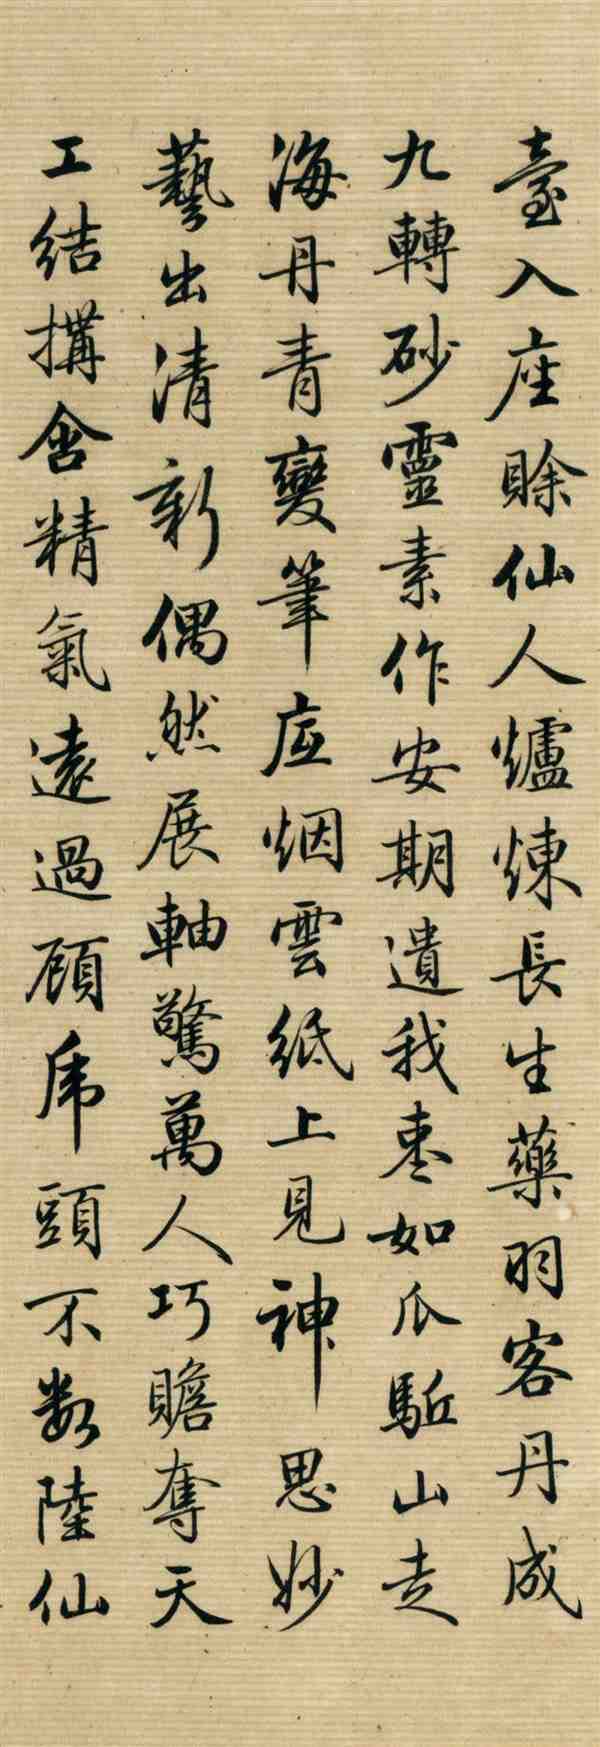 臺入座賒仙人爐煉長生藥羽客丹成
九轉砂靈素作安期遺我棗如瓜駈山走
海丹青變筆底烟雲紙上見神思妙
藝出清新偶然展軸驚萬人巧贍奪天
工結搆含精氣遠過顧虎頭不數陸仙